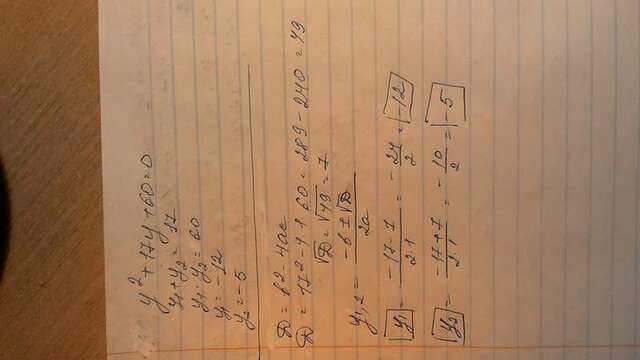 y² + 17y + 60 = 0
y₁ + y₂ = 17
y₁ · y₂ = 60
y₁ = -12
y₂ = -5
D = b² - 4ac
D = 17² - 4·1·60 = 289 - 240 = 49
√D = √49 = 7
y₁,₂ = (-b ± √D) / 2a
y₁ = (-17 - 7) / (2·1) = -24/2 = -12
y₂ = (-17 + 7) / (2·1) = -10/2 = -5